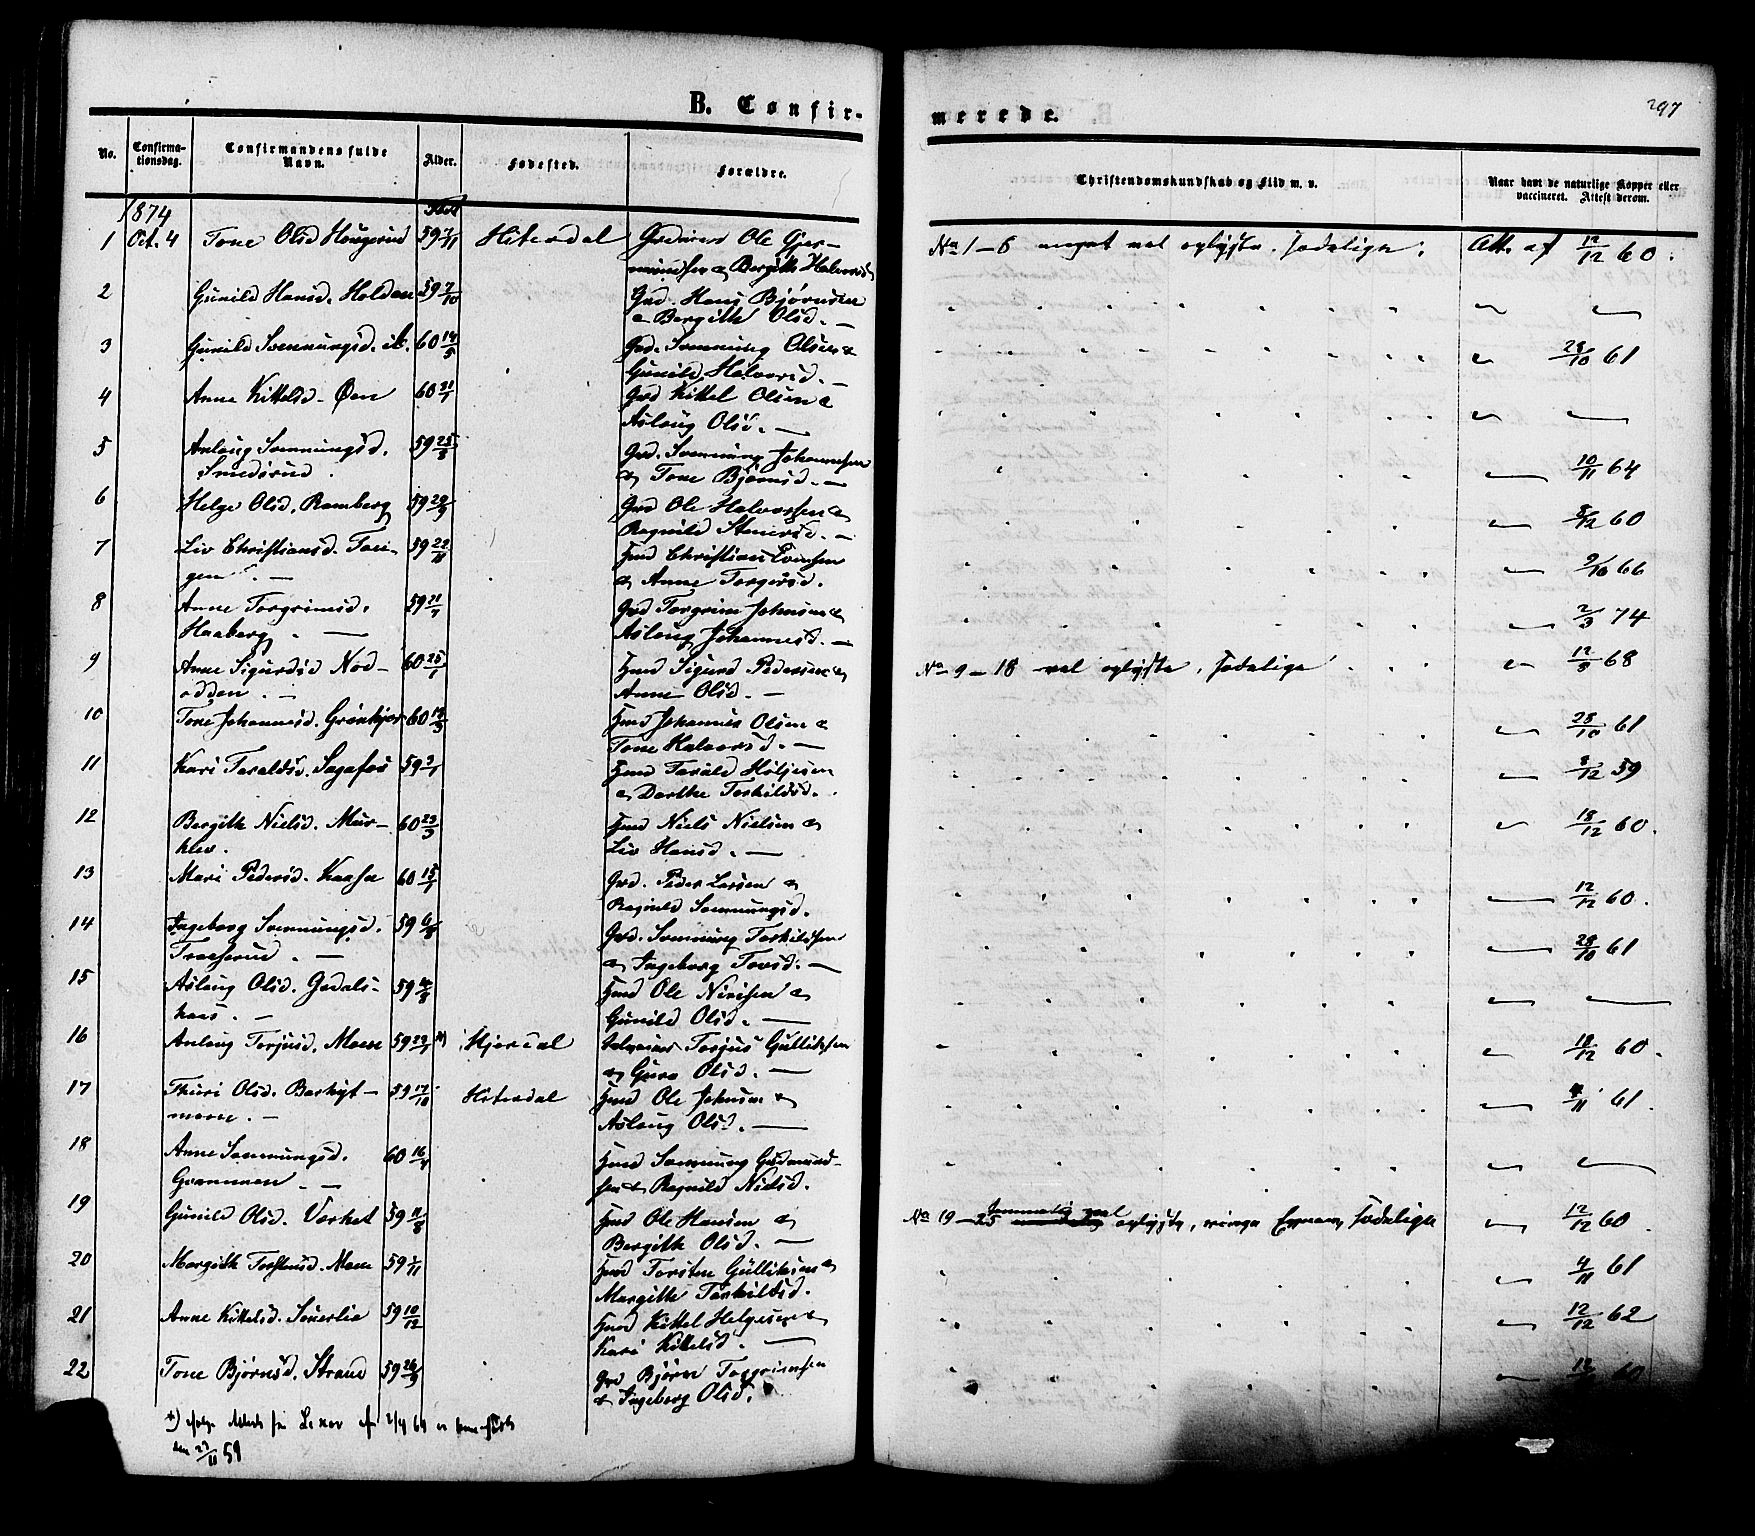 B. Confir-
merede.
297
No.
Confirma-
tionsdag.
Confirmandens fulde
Navn.
Alder.
Fødested.
Forældre.
Christendomskundskab og Flid m. v.
Naar havt de naturlige Kopper eller
vaccineret. Attest derom.
1874
1 Oct. 4 Tone Olsd 59 7/11 Hiterdal Ole Gjer-
mundsen & Bergith Halvorsd
No 1-6 meget vel oplyste, sædelige. Att. af 12/12 60.
2 Gunild Hansd. Holden 59 7/10 Grd. Hans Bjørnsen
& Bergith Olsd. —
3 Gunild Svennungsd. ib. 60 14/5 Grd. Svennung Olsen &
Gunild Halvorsd. — 28/10 61
4 Anne Kittelsd. Øen 60 21/1 Grd Kittel Olsen &
Aslaug Olsd. —
5 Anlaug Svennungsd. 59 25/8 Grd. Svennung Johannesen
& Tone Bjørnsd. — 10/11 64
6 Helge Olsd. Ramberg 59 29/9 Grd Ole Halvorsen &
Ragnild — 60
7 Liv Christiansd. 59 Hmd Christian Evensen
& Anne Torgersd. 9/10 66
8 Anne Torgrimsd. 59 21/7 Grd Torgrim Johnsen &
Haaberg. — Aslaug Johannesd. — 2/3 74
9 Anne Sigurdsd Nod- 60 25/1 Hmd Sigurd Pedersen &
odden. — Anne Olsd. —
No 9-18 vel oplyste, sædelige 68
10 Tone Johannesd. Grønkjær 60 Hmd Johannes Olsen &
Tone Halvorsd. — 28/10 61
11 Kari Taraldsd. Sagafos 59 Hmd Tarald Høljesen
& Dorthe Torkildsd. 59
12 Bergith Nielsd. Mør- 60 23/3 Hmd Niels Nielsen &
klev. Liv Hansd. — 18/12 60.
13 Mari Pedersd. Kaasa 60 15/1 Grd. Peder Larsen &
Ragnild Svennungsd. 12/12 60.
14 Ingeborg Svennungsd. 59 6/8 Grd. Svennung Torkildsen
& Ingeborg Tovsd. — 28/10 61
15 Aslaug Olsd. 59 Hmd Ole &
Gunild Olsd. —
16 Anlaug Torjusd. Moen 59 *) Hjerdal Torjus Gulliksen
& Guro Olsd. — 18/12 60.
17 Thuri Olsd. 59 17/10 Hiterdal Hmd Ole Johnsen &
moen. — Aslaug Olsd. — 61.
18 Anne Svennungsd. 60 16/4 Hmd Svennung Gudmund-
sen & Ragnild Nielsd.
19 Gunild Olsd. Værket 59 11/8 Hmd Ole Hansen &
Bergith Olsd. —
No 19-25 temmelig vel oplyste, ringe Evner, sædelige 12/12 60.
20 Margith Torstensd. Moen 59 1/11 Hmd Torsten Gulliksen &
Margith Torkildsd. 4/11 61
21 Anne Kittelsd. 59 10/12 Hmd Kittel Helgesen &
Kari Kittelsd. — 12/12 62
22 Tone Bjørnsd. Strand 59 26/9 Grd Bjørn Torgrimsen
& Ingeborg Olsd. 60
*) ifølge Attest fra
den 27/11 59